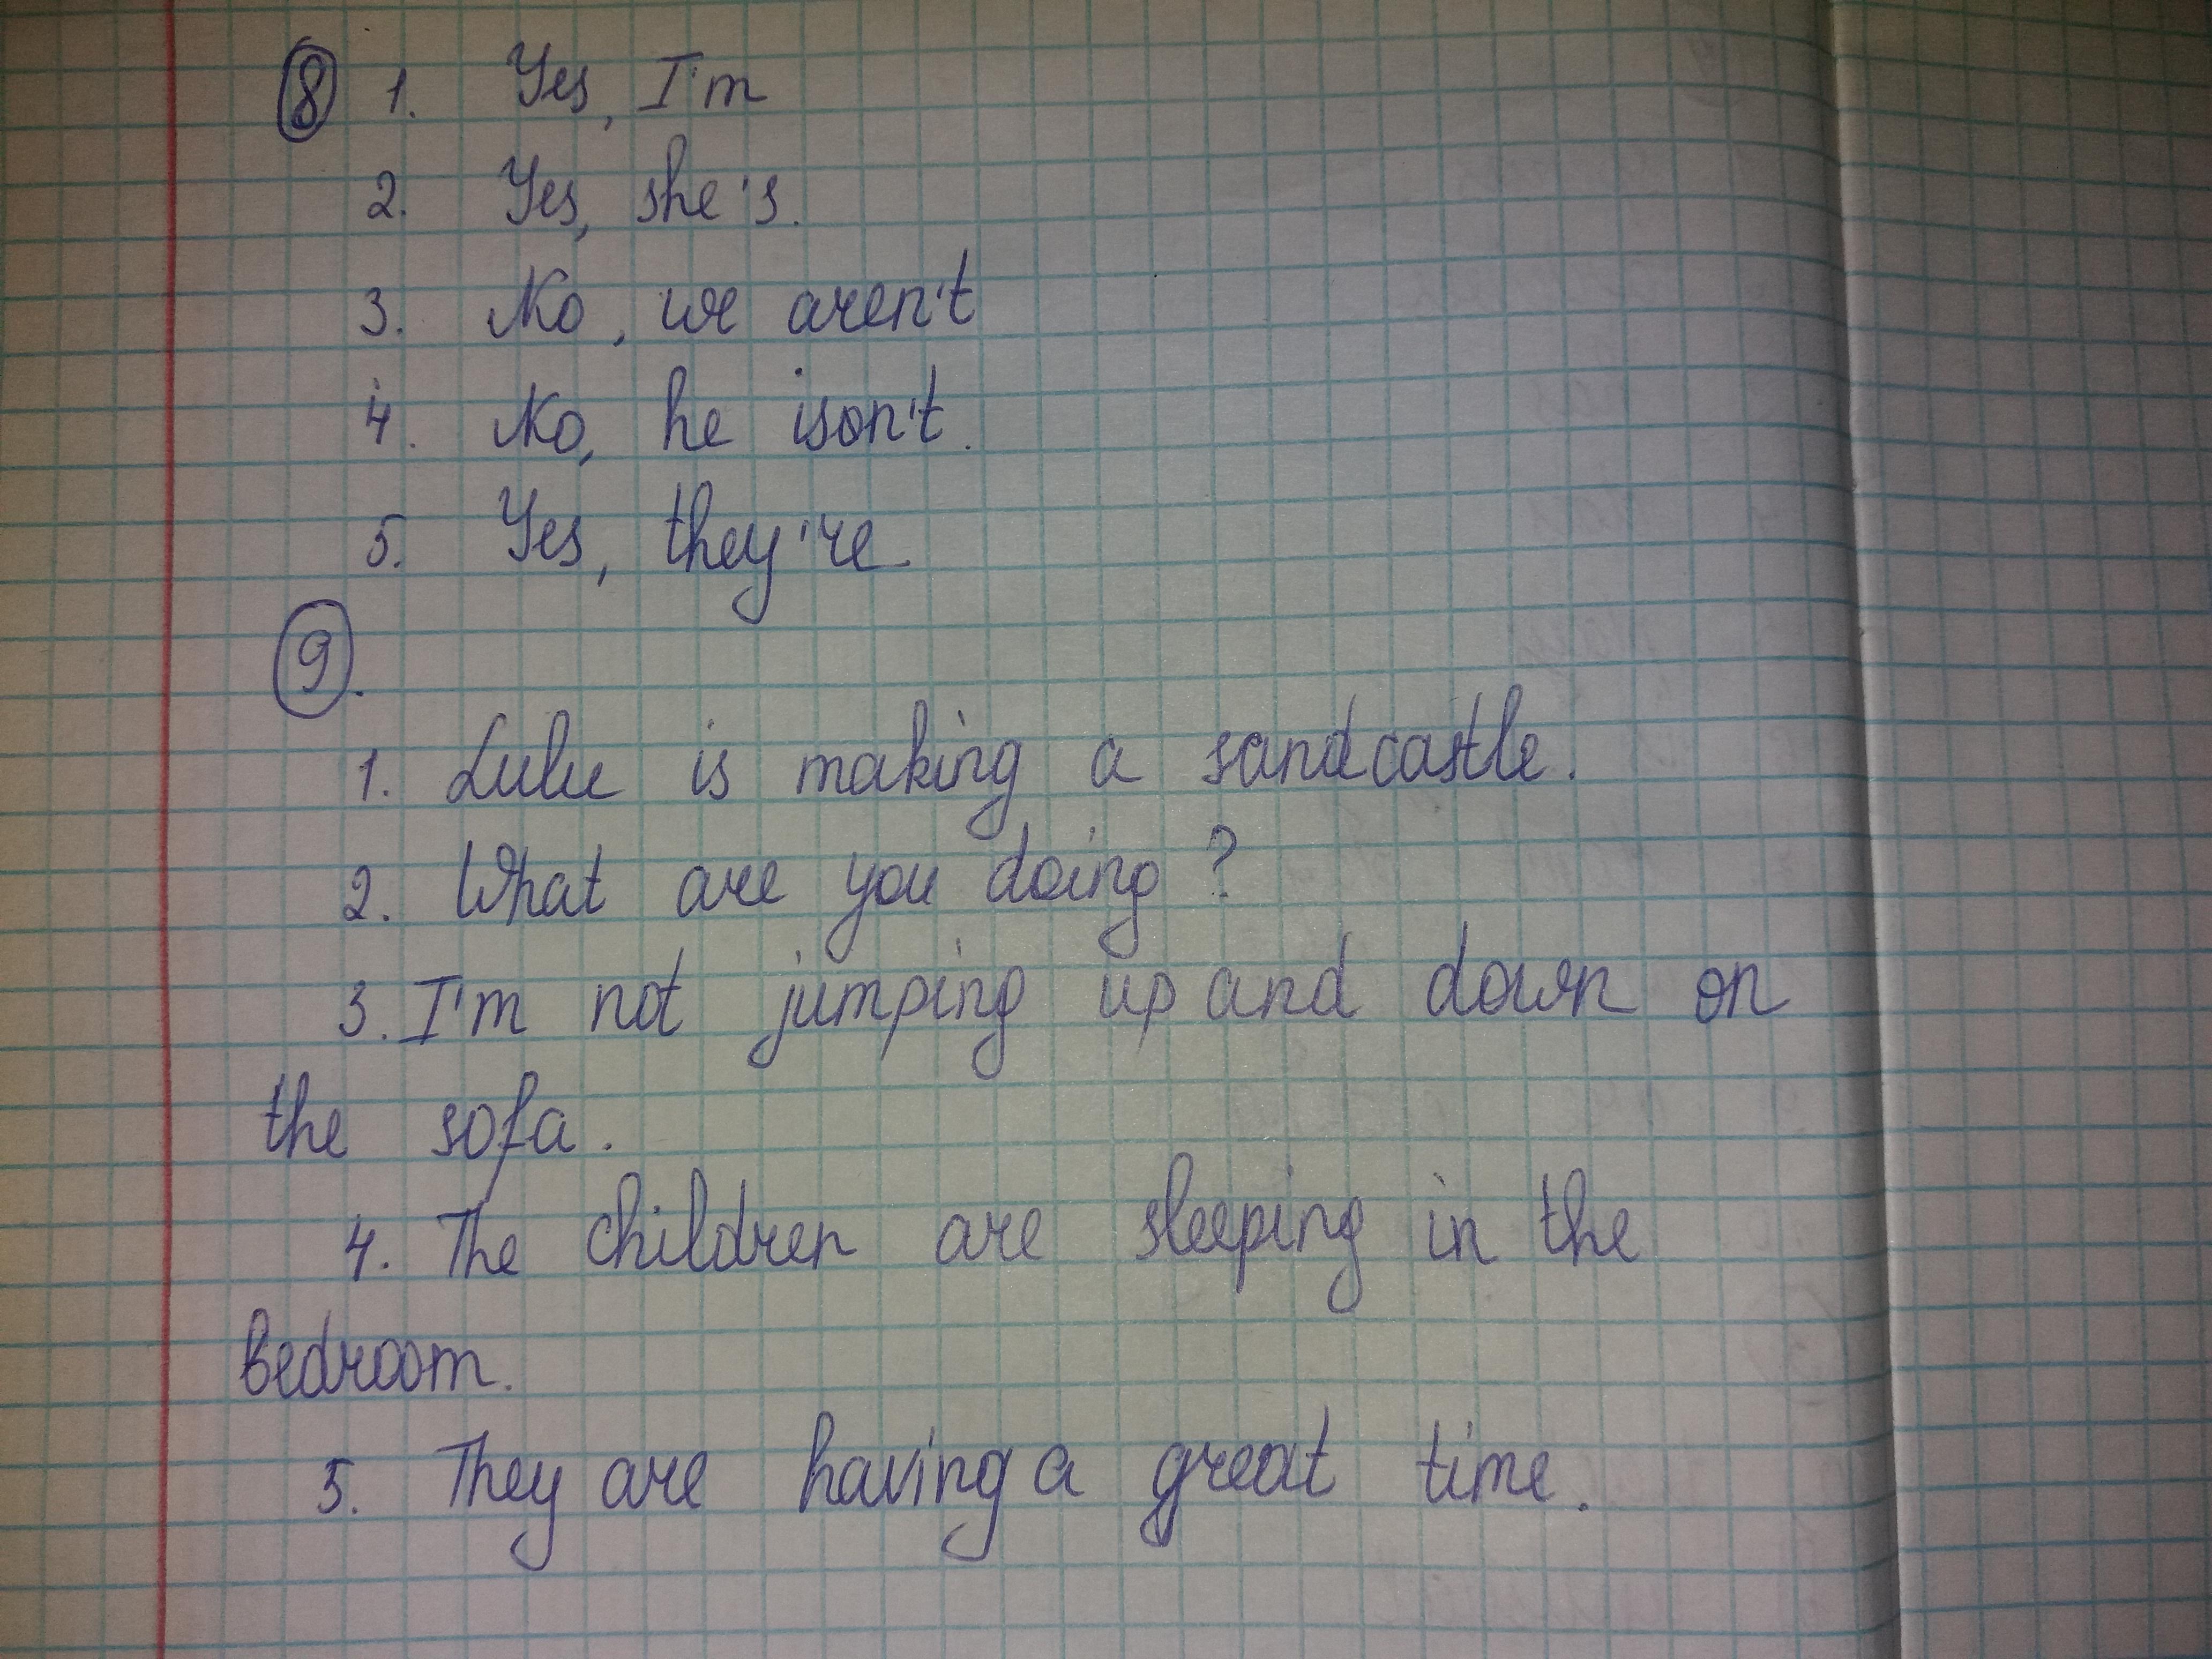 8 1. Yes, I'm
2. Yes, she's.
3. No, we aren't
4. No, he ison't.
5. Yes, they're
9.
1. Lulu is making a sandcastle.
2. What are you doing?
3. I'm not jumping up and down on
the sofa.
4. The children are sleeping in the
bedroom.
5. They are having a great time.